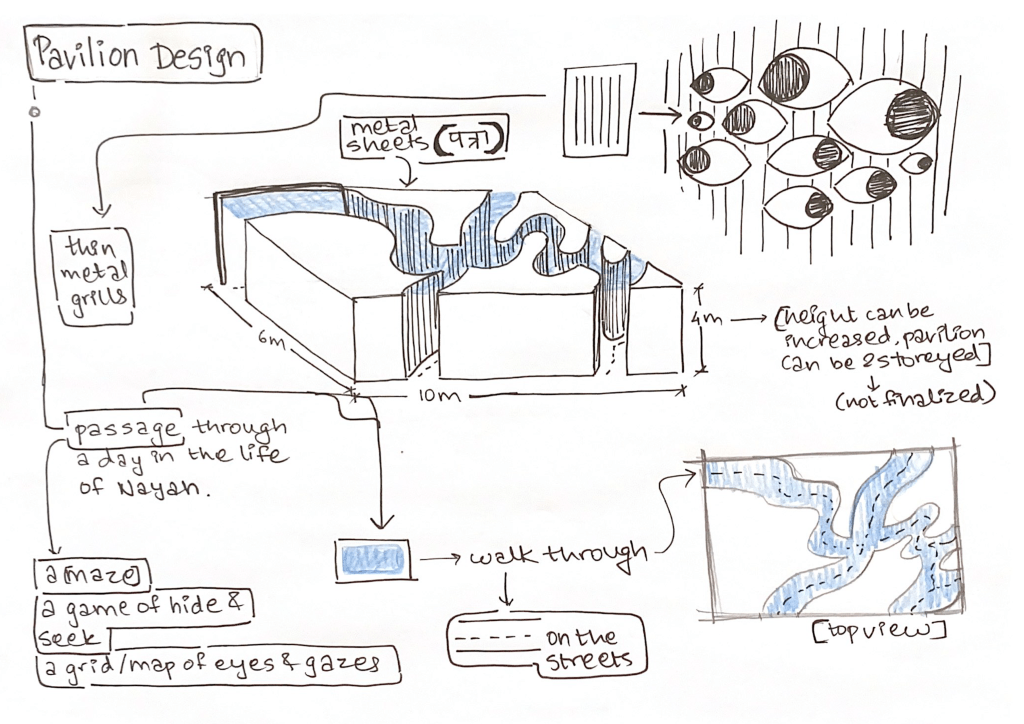 Pavilion Design
metal
sheets (पत्रा)
thin
metal
grills
6m
10m
4m
[height can be
increased, pavilion
can be 2 storeyed]
(not finalized)
passage through
a day in the life
of Nayan.
walk through
a maze
a game of hide &
seek
a grid/map of eyes & gazes
on the
streets
[top view]